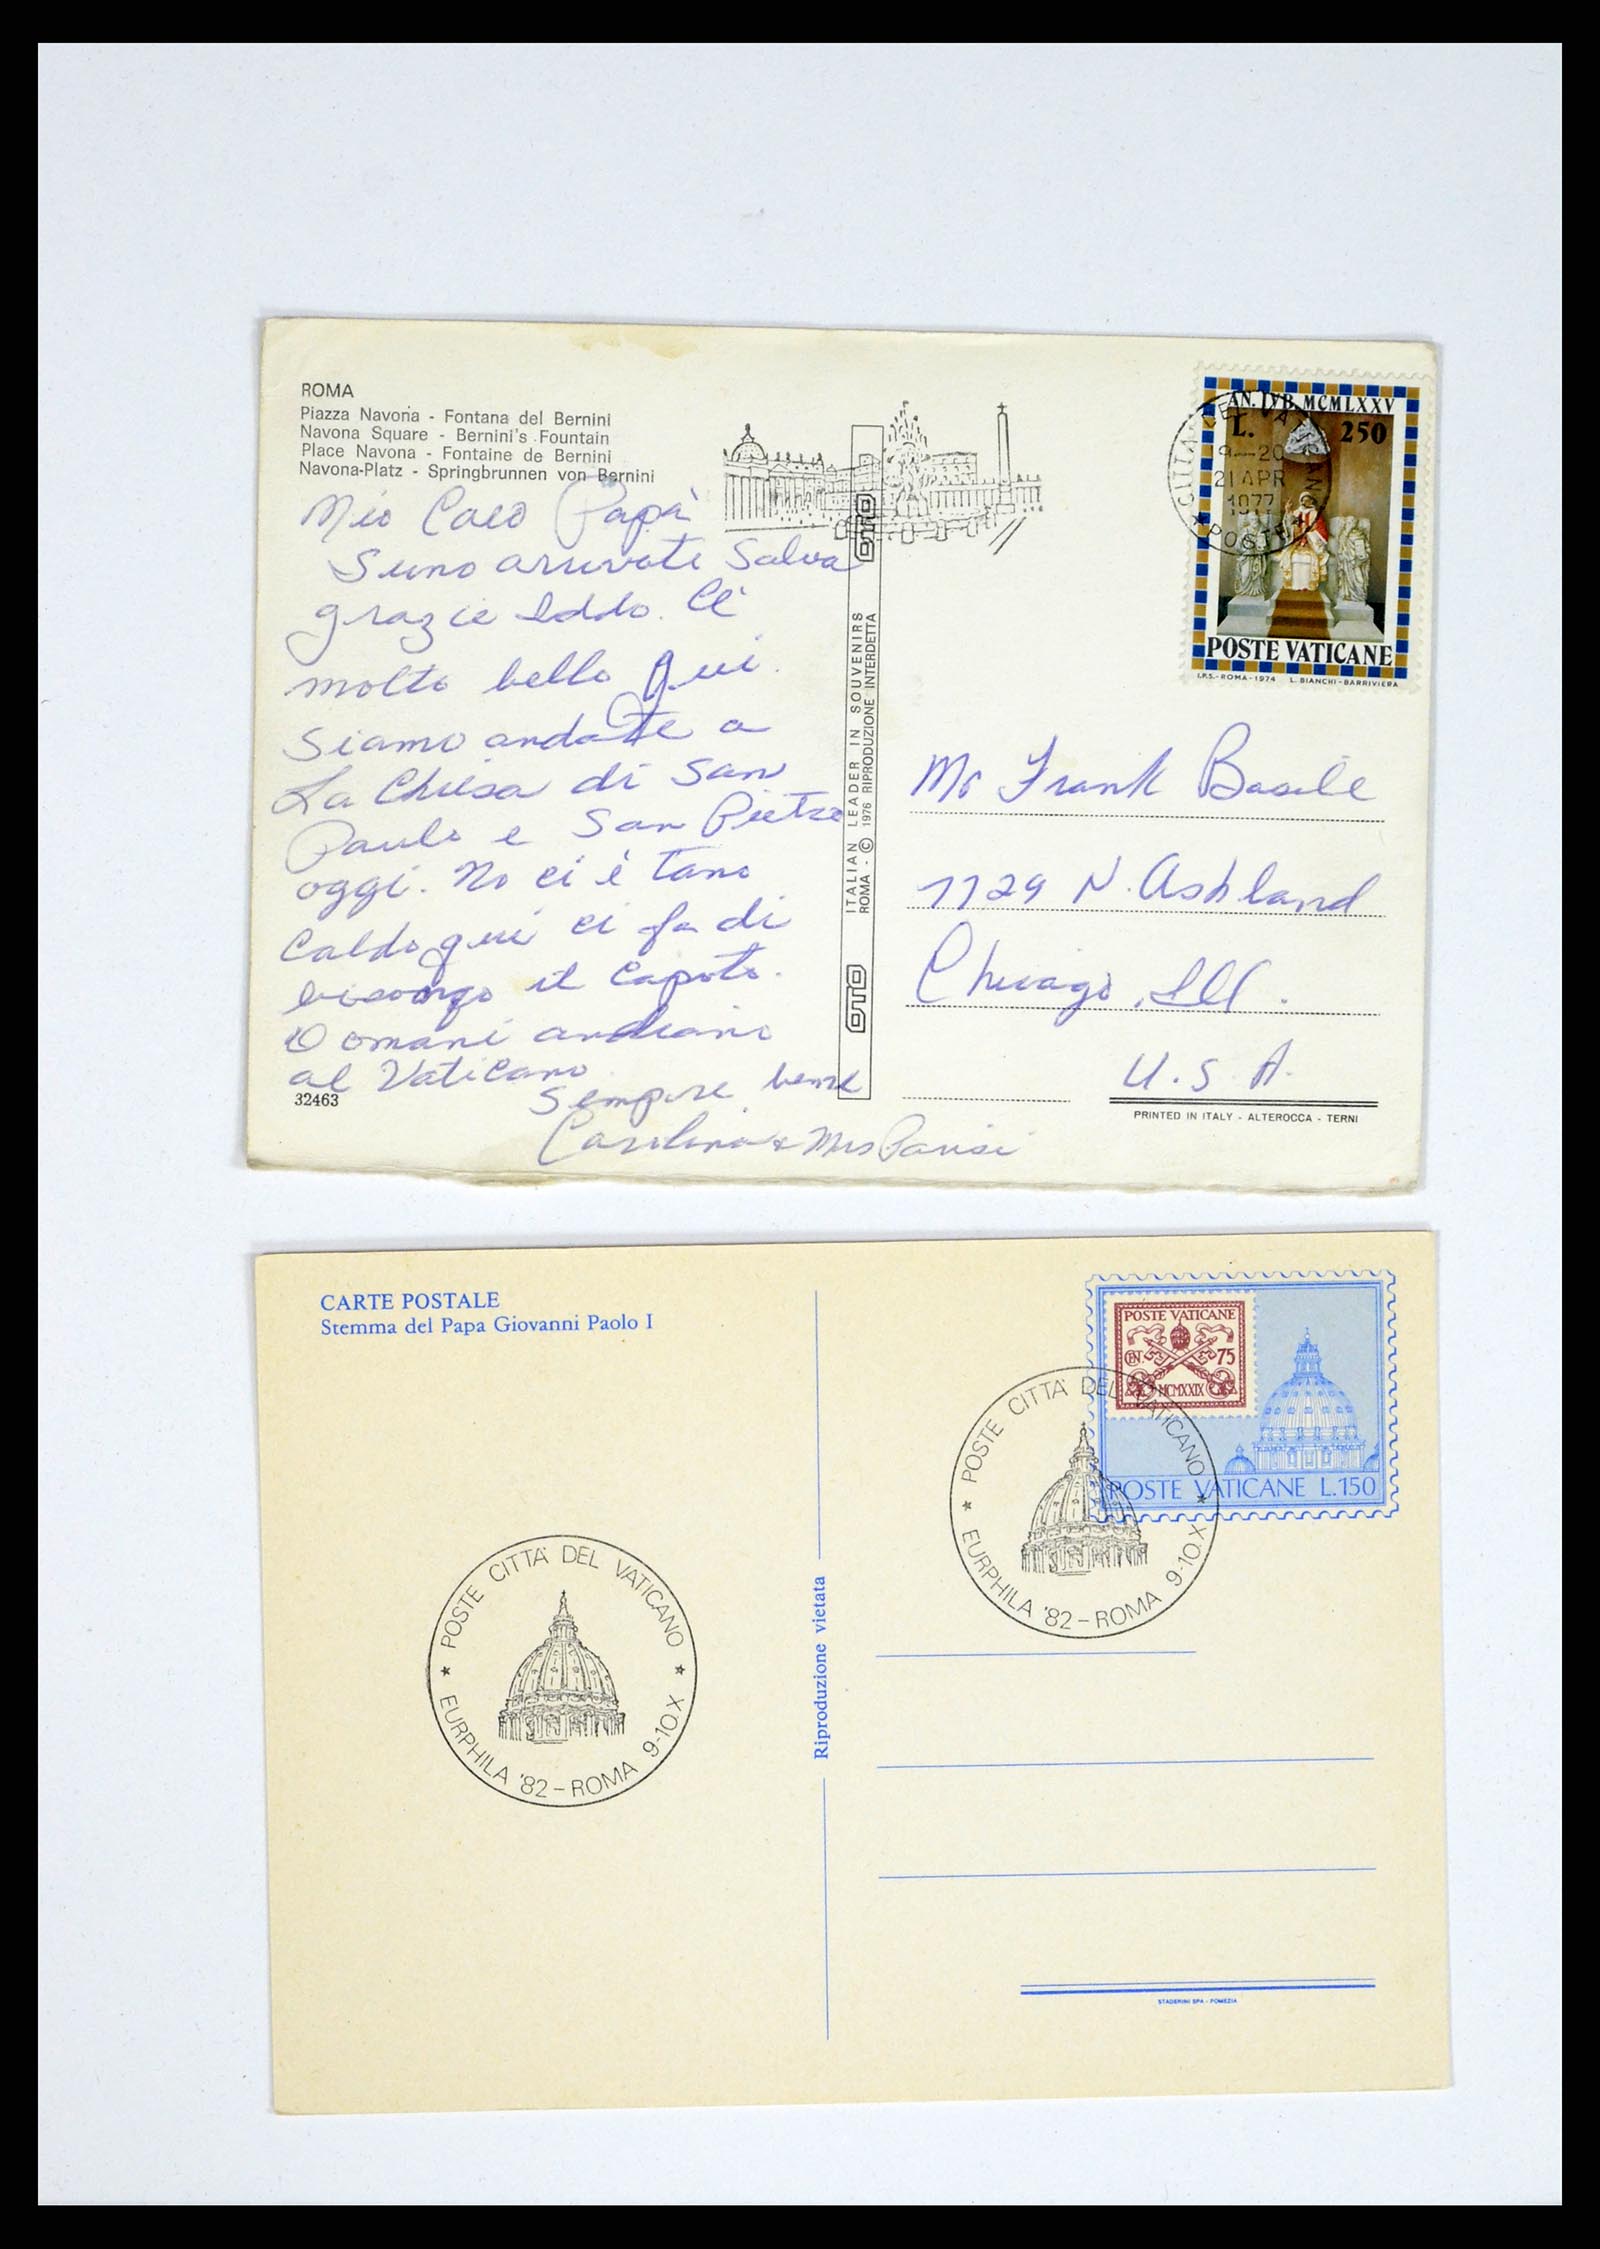 ROMA
Piazza Navona - Fontana del Bernini
Navona Square - Bernini's Fountain
Place Navona - Fontaine de Bernini
Navona-Platz - Springbrunnen von Bernini
Mio Caro Papà
Suno arruvate Salva
grazie Iddo. Cè
molto bello qui.
Siamo andatte a
La Chiesa di San
Paulo e San Pietro
oggi. No ci è tano
Caldo qui ci fa di
bisongo il Capoto.
Domani andiamo
al Vaticano.
Sempre bene
Carolina + Mrs Parisi
32463
OTO
ITALIAN LEADER IN SOUVENIRS
ROMA - © 1976 RIPRODUZIONE INTERDETTA
OTO
AN. IVB. MCMLXXV
L. 250
POSTE VATICANE
I.P.S. - ROMA - 1974 L. BIANCHI - BARRIVIERA
CITTA DEL VATICANO
9—20
21 APR
1977
POSTE
Mr Frank Basile
1729 N. Ashland
Chicago, Ill.
U.S.A.
PRINTED IN ITALY - ALTEROCCA - TERNI
CARTE POSTALE
Stemma del Papa Giovanni Paolo I
POSTE VATICANE
CEN. 75
MCMXXIX
POSTE VATICANE L.150
POSTE CITTA' DEL VATICANO
EURPHILA '82 - ROMA 9-10.X
POSTE CITTA' DEL VATICANO
EURPHILA '82 - ROMA 9-10.X
Riproduzione vietata
STADERINI SPA - POMEZIA